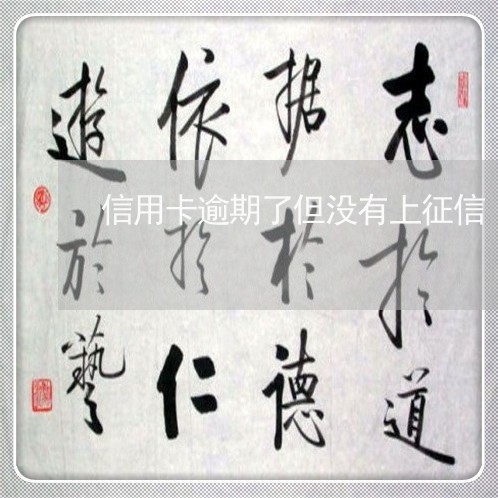 志於道
据於德
依於仁
遊於藝
信用卡逾期了但没有上征信